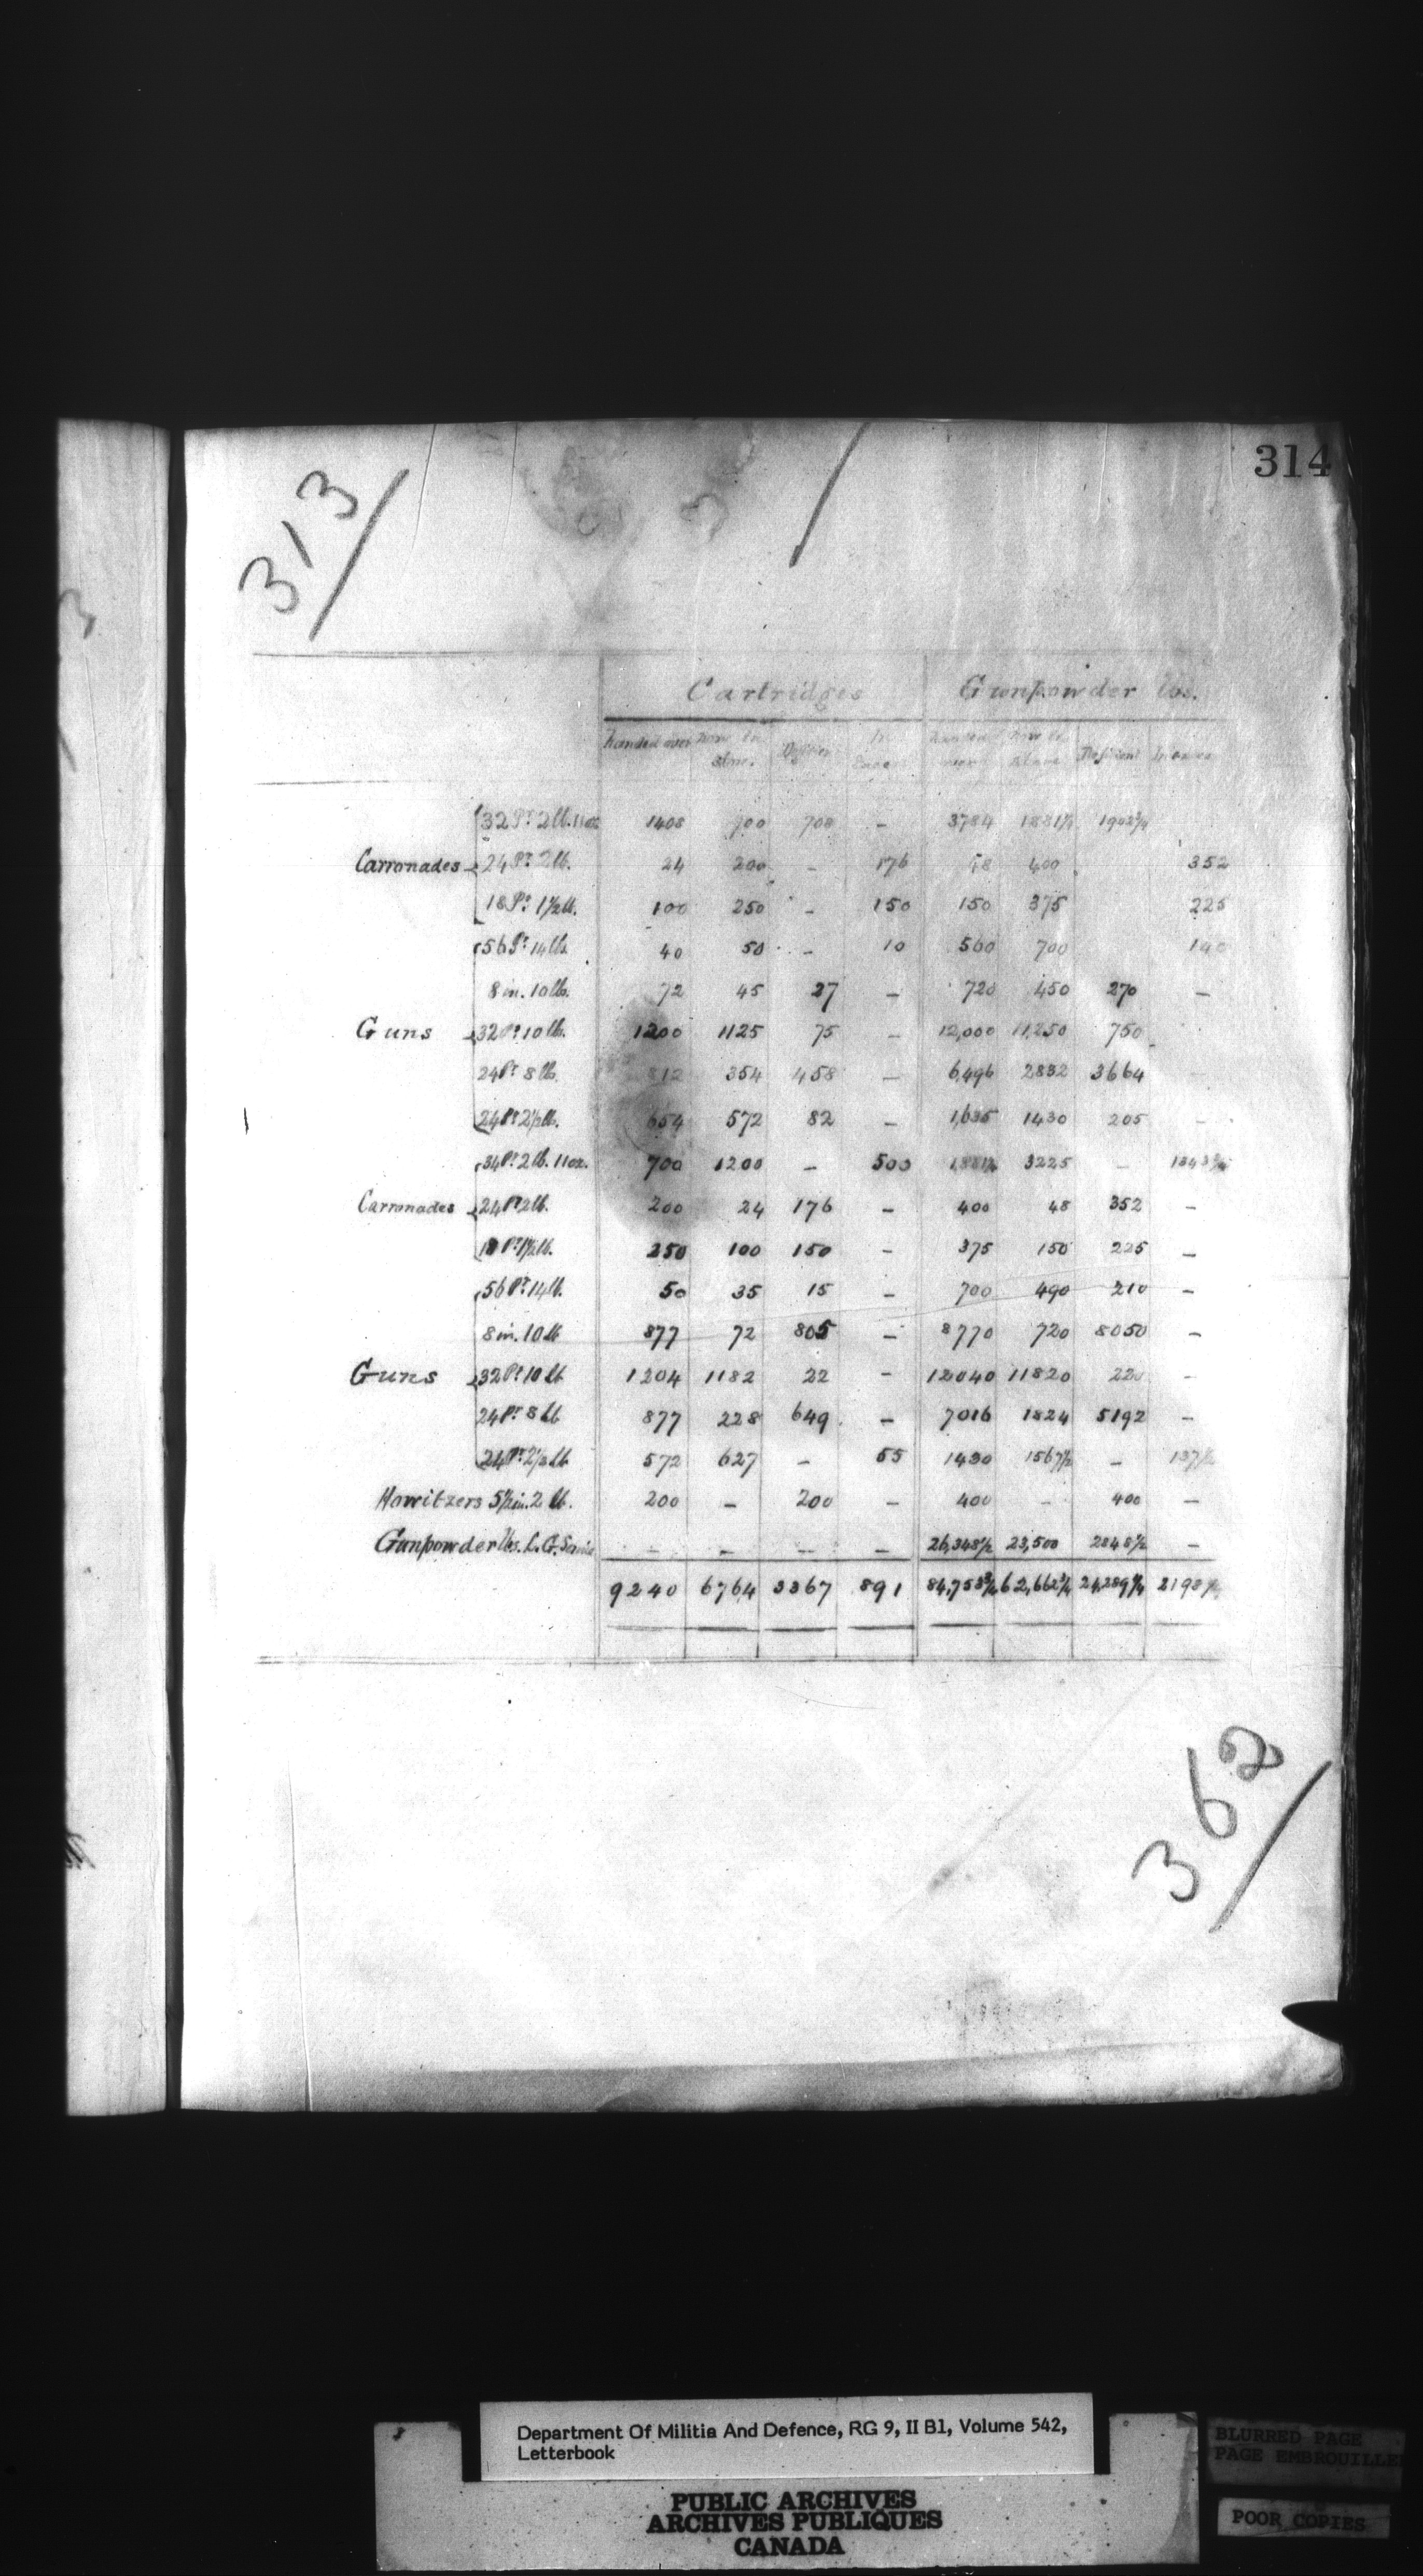 314
313/
3 /
Cartridges Gunpowder lbs.
Handed over Now in Store. In Handed Now in Deficient
32 Pr 2 lb. 11 oz 1408 700 708 - 3784 1902 3/4
Carronades 24 Pr 2 lb. 24 200 - 176 48 400 352
18 Pr 1 1/2 lb. 100 250 - 150 150 375 225
56 Pr 14 lb. 40 50 - 10 560 700 140
8 in. 10 lb. 72 45 27 - 720 450 270 -
Guns 32 Pr 10 lb. 1200 1125 75 - 12,000 11,250 750 -
24 Pr 8 lb. 812 354 458 - 6,496 2832 3664 -
24 Pr 2 1/2 lb. 654 572 82 - 1,635 1430 205 -
34 Pr 2 lb. 11 oz. 700 1200 - 500 3225 - 1343 3/4
Carronades 24 Pr 2 lb. 200 24 176 - 400 48 352 -
18 Pr 1 1/2 lb. 250 100 150 - 375 150 225 -
56 Pr 14 lb. 50 35 15 - 700 490 210 -
8 in. 10 lb 877 72 805 - 8770 720 8050 -
Guns 32 Pr 10 lb 1204 1182 22 - 12040 11820 220 -
24 Pr 8 lb 877 228 649 - 7016 1824 5192 -
24 Pr 2 1/2 lb 572 627 - 55 1430 1567 1/2 - 137 1/2
Howitzers 5 1/2 in. 2 lb. 200 - 200 - 400 - 400 -
Gunpowder lbs. L. G. Service - - - - 26,348 1/2 23,500 2848 1/2 -
9240 6764 3367 891 84,753 3/4 62,662 3/4 24,289 1/4 2198 1/4
362/
Department Of Militia And Defence, RG 9, II B1, Volume 542,
Letterbook
PUBLIC ARCHIVES
ARCHIVES PUBLIQUES
CANADA
BLURRED PAGE
PAGE EMBROUILLE
POOR COPIES